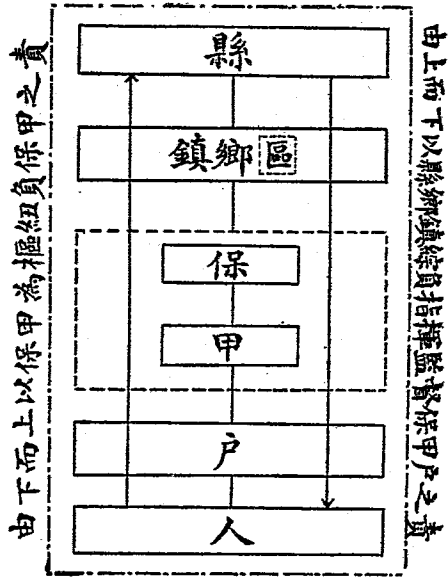 由上而下以縣鄉鎮綜負指揮監督保甲户之責
縣
鎮鄉區
保
甲
户
人
由下而上以保甲為樞紐負保甲之責